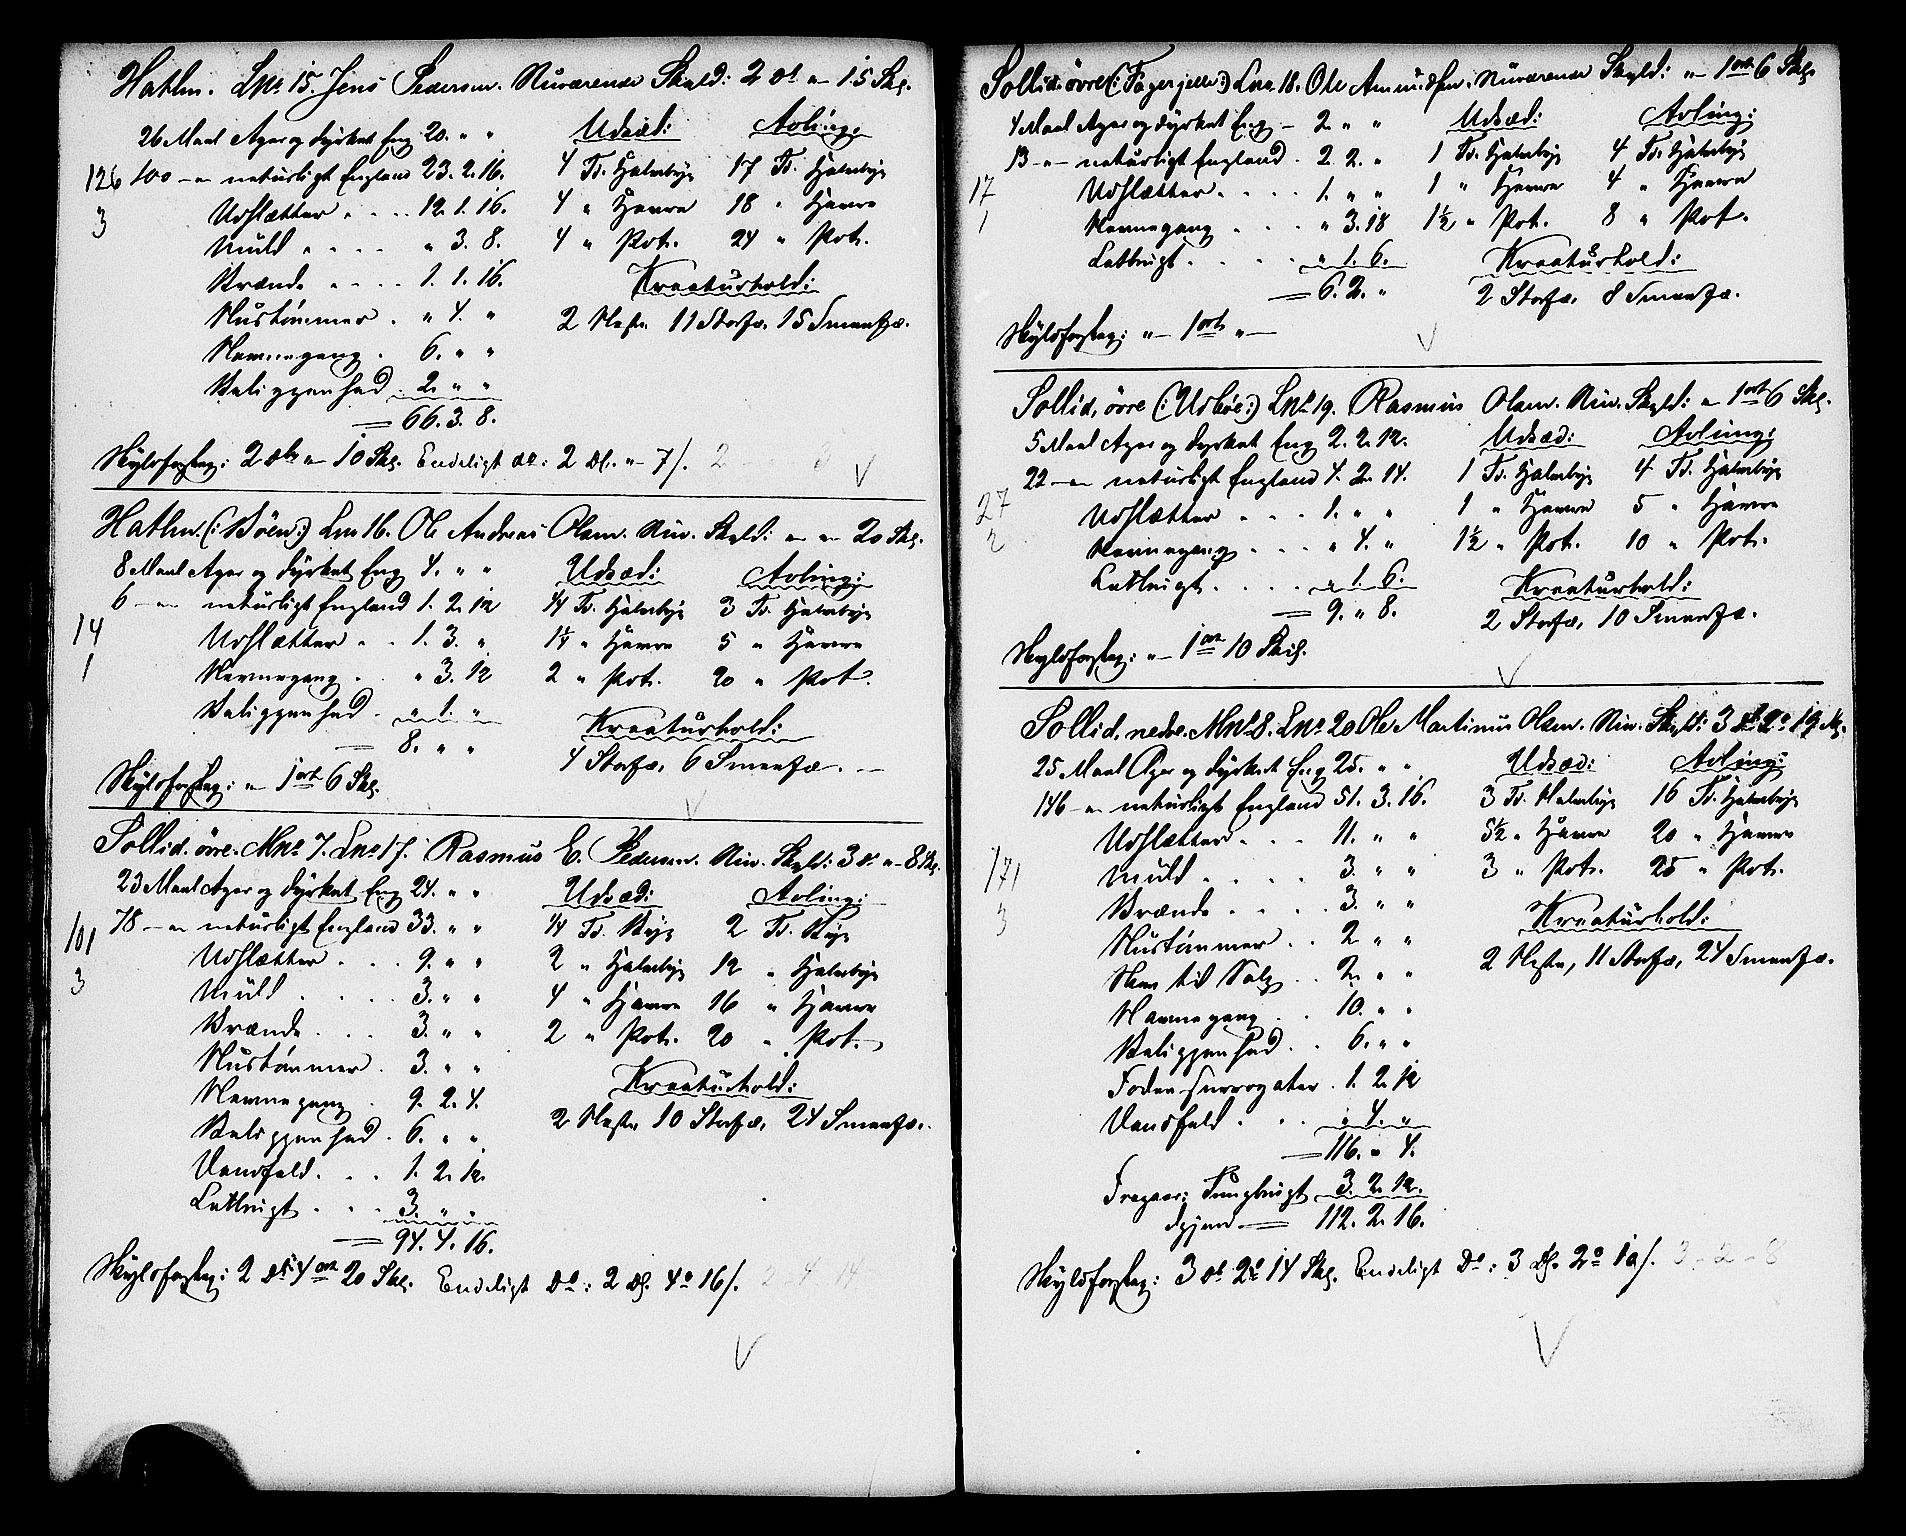 Hatlen. LNo 15. Jens Pedersen. Nuværende Skyld: 2 Dl „ 15 Skl.
26 Maal Ager og dyrket Eng 20. „ „ Udsæd: Avling:
126 100 — „ naturligt England 23. 2. 16. 4 Td. Halmbyg 17 Td. Halmbyg
3 Udslætter . . . . 12. 1. 16. 4 „ Havre 18 „ Havre
Muld . . . . . „ 3. 8. 4 „ Pot. 24 „ Pot.
Brænde . . . . 1. 1. 16. Kreaturhold:
Hustømmer . „ 4. „ 2 Heste 11 Storfæ, 15 Smaafæ.
Havnegang . 6. „ „
Beliggenhed . 2. „ „
= 66. 3. 8.
Skyldforslag: 2 Dlr „ 10 Skl. Endeligt do: 2 Dl. „ 7 /. 2
Hatlen (: Bøen:) LNo 16. Ole Andreas Olsen. Nuv. Skyld: „ „ 20 Skl.
8 Maal Ager og dyrket Eng 4. „ „ Udsæd: Avling:
6 — „ naturligt England 1. 2. 12 1/4 Td. Halmbyg 3 Td. Halmbyg
14 Udslætter . . 1. 3. „ 1 1/4 „ Havre 5 „ Havre
1 Havnegang . . „ 3. 12 2 „ Pot. 20 „ Pot.
Beliggenhed . „ 1. „ Kreaturhold:
= 8. „ „ 4 Storfæ, 6 Smaafæ. —
Skyldforslag: „ 1 ort 6 Skl.
Sollid. øvre. MNo 7. LNo 17. Rasmus E. Pedersen. Nuv. Skyld: 3 Dl „ 8 Skl.
23 Maal Ager og dyrket Eng 24. „ „ Udsæd: Avling:
101 78 — „ naturligt England 33. „ „ 1/4 Td. Byg 2 Td. Byg
3 Udslætter . . . 9. „ „ 2 „ Halmbyg 12 „ Halmbyg
Muld . . . . . 3. „ „ 4 „ Havre 16 „ Havre
Brænde . . . 3. „ „ 2 „ Pot. 20 „ Pot.
Hustømmer . 3. „ „ Kreaturhold:
Havnegang . 9. 2. 4. 2 Heste 10 Storfæ, 24 Smaafæ.
Beliggenhed . 6. „ „
Vandfald . . . 1. 2. 12.
Letbrugt . . . 3. „ „
= 94. 4. 16.
Skyldforslag: 2 Dl 4 ort 20 Skl. Endeligt Do: 2 Dl. 4 o 16 /. 2 4 14
Sollid. øvre (: Fagerjelle:) LNo 18. Ole Amundsen. Nuværende Skyld: „ 1 ort 6 Skl.
4 Maal Ager og dyrket Eng — 2. „ „ Udsæd: Avling:
13 — „ naturligt England . 2. 2. „ 1 Td. Halmbyg 4 Td. Halmbyg
17 Udslætter . . . . 1. „ „ 1 „ Havre 4 „ Havre
1 Havnegang . . . „ 3. 18 1 1/2 „ Pot. 8 „ Pot.
Letbrugt . . . . . „ 1. 6. Kreaturhold:
= 6. 2. „ 2 Storfæ, 8 Smaafæ.
Skyldforslag: „ 1 ort „ —
Sollid, øvre (: Udbøe:) LNo 19. Rasmus Olsen. Nuv. Skyld: „ 1 ort 6 Skl.
5 Maal Ager og dyrket Eng 2. 2. 12. Udsæd: Avling:
22 — „ naturligt England 4. 2. 14. 1 Td. Halmbyg 4 Td. Halmbyg
27 Udslætter . . . 1. „ „ 1 „ Havre 5 „ Havre
2 Havnegang . . . „ 4. „ 1 1/2 „ Pot. 10 „ Pot.
Letbrugt . . . . „ 1. 6. Kreaturhold:
= 9. „ 8. 2 Storfæ, 10 Smaafæ.
Skyldforslag: „ 1 ort 10 Skil.
Sollid, nedre. MNo 8. LNo 20 Ole Martinus Olsen. Nuv. Skyld: 3 Dl 2 o 19 Sk.
25 Maal Ager og dyrket Eng 25. „ „ Udsæd: Avling:
146 — „ naturligt England 51. 3. 16. 3 Td. Halmbyg 16 Td. Halmbyg
Udslætter . . . 11. „ „ 5 1/2 „ Havre 20 „ Havre
171 Muld . . . . 3. „ „ 3 „ Pot. 25 „ Pot.
3 Brænde . . . . 3. „ „ Kreaturhold:
Hustømmer . . 2 „ „ 2 Heste, 11 Storfæ, 24 Smaafæ.
Skov til Salg . . 2. „ „
Havnegang . . 10. „ „
Beliggenhed . . 6. „ „
Foder-surrogater . 1. 2. 12
Vandfald . . . „ 4. „
= 116. „ 4.
Fragaar: Tungbrugt 3. 2. 12.
igjen = 112. 2. 16.
Skyldforslag: 3 Dl 2 o 14 Skl. Endeligt Do: 3 Dl. 2 o 10 /. 3 - 2 - 8